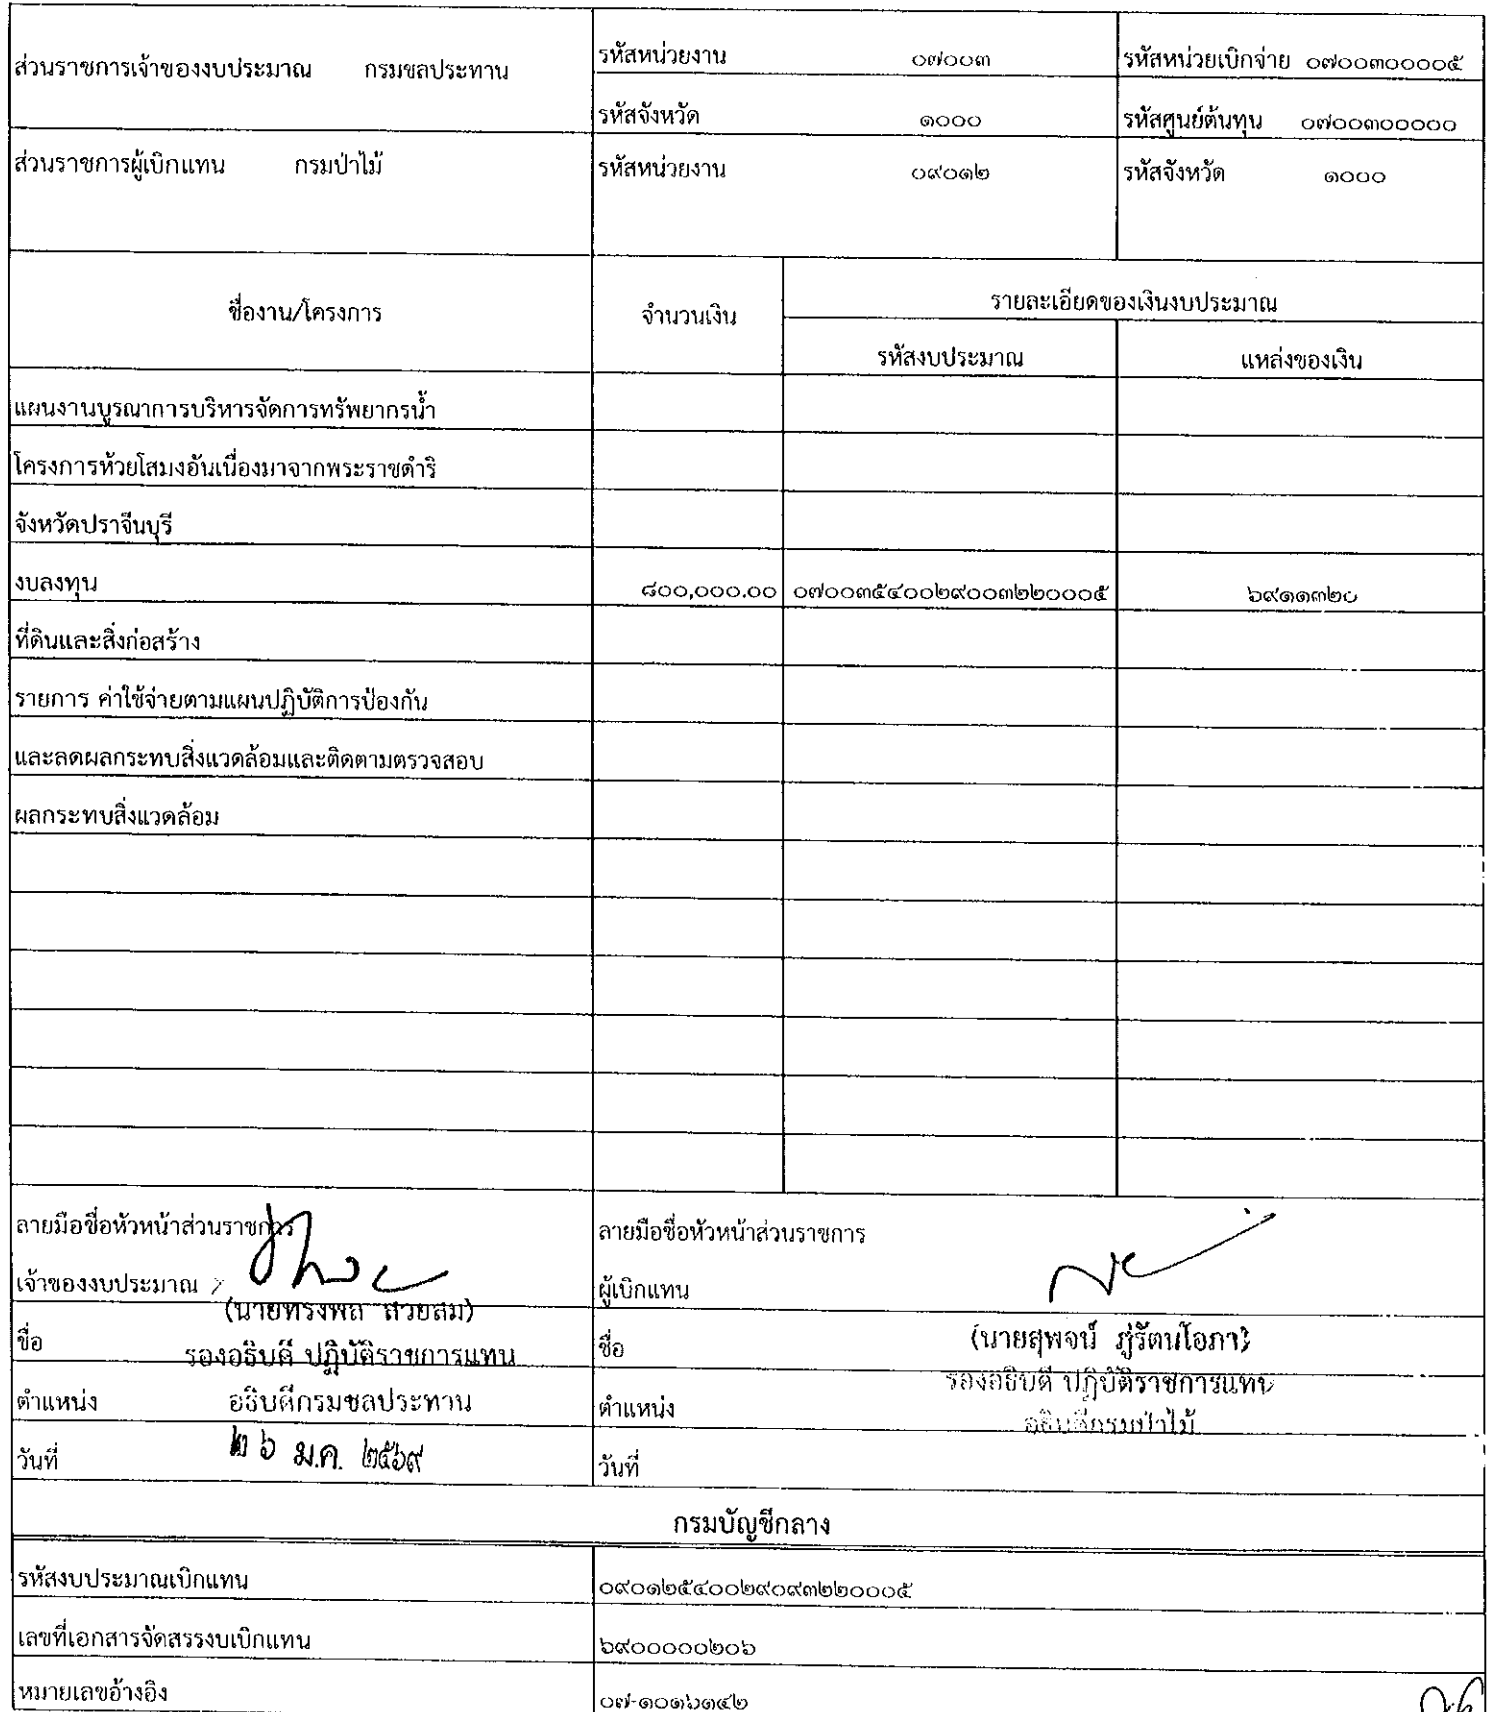 ส่วนราชการเจ้าของงบประมาณ กรมชลประทาน
รหัสหน่วยงาน ๐๗๐๐๓
รหัสหน่วยเบิกจ่าย ๐๗๐๐๓๐๐๐๐๕
รหัสจังหวัด ๑๐๐๐
รหัสศูนย์ต้นทุน ๐๗๐๐๓๐๐๐๐๐
ส่วนราชการผู้เบิกแทน กรมป่าไม้
รหัสหน่วยงาน ๐๙๐๑๒
รหัสจังหวัด ๑๐๐๐
ชื่องาน/โครงการ
จำนวนเงิน
รายละเอียดของเงินงบประมาณ
รหัสงบประมาณ
แหล่งของเงิน
แผนงานบูรณาการบริหารจัดการทรัพยากรน้ำ
โครงการห้วยโสมงอันเนื่องมาจากพระราชดำริ
จังหวัดปราจีนบุรี
งบลงทุน ๘๐๐,๐๐๐.๐๐ ๐๗๐๐๓๕๔๐๐๒๙๐๐๓๒๒๐๐๐๕ ๖๙๑๑๓๒๐
ที่ดินและสิ่งก่อสร้าง
รายการ ค่าใช้จ่ายตามแผนปฏิบัติการป้องกัน
และลดผลกระทบสิ่งแวดล้อมและติดตามตรวจสอบ
ผลกระทบสิ่งแวดล้อม
ลายมือชื่อหัวหน้าส่วนราชการ
เจ้าของงบประมาณ
(นายทรงพล สวยสม)
ชื่อ
รองอธิบดี ปฏิบัติราชการแทน
ตำแหน่ง อธิบดีกรมชลประทาน
วันที่ ๒๖ ม.ค. ๒๕๖๙
ลายมือชื่อหัวหน้าส่วนราชการ
ผู้เบิกแทน
ชื่อ (นายสุพจน์ ภู่รัตนโอภา)
รองอธิบดี ปฏิบัติราชการแทน
ตำแหน่ง อธิบดีกรมป่าไม้
วันที่
กรมบัญชีกลาง
รหัสงบประมาณเบิกแทน ๐๙๐๑๒๕๔๐๐๒๙๐๙๓๒๒๐๐๐๕
เลขที่เอกสารจัดสรรงบเบิกแทน ๖๙๐๐๐๐๐๒๐๖
หมายเลขอ้างอิง ๐๗-๑๐๑๖๑๔๒